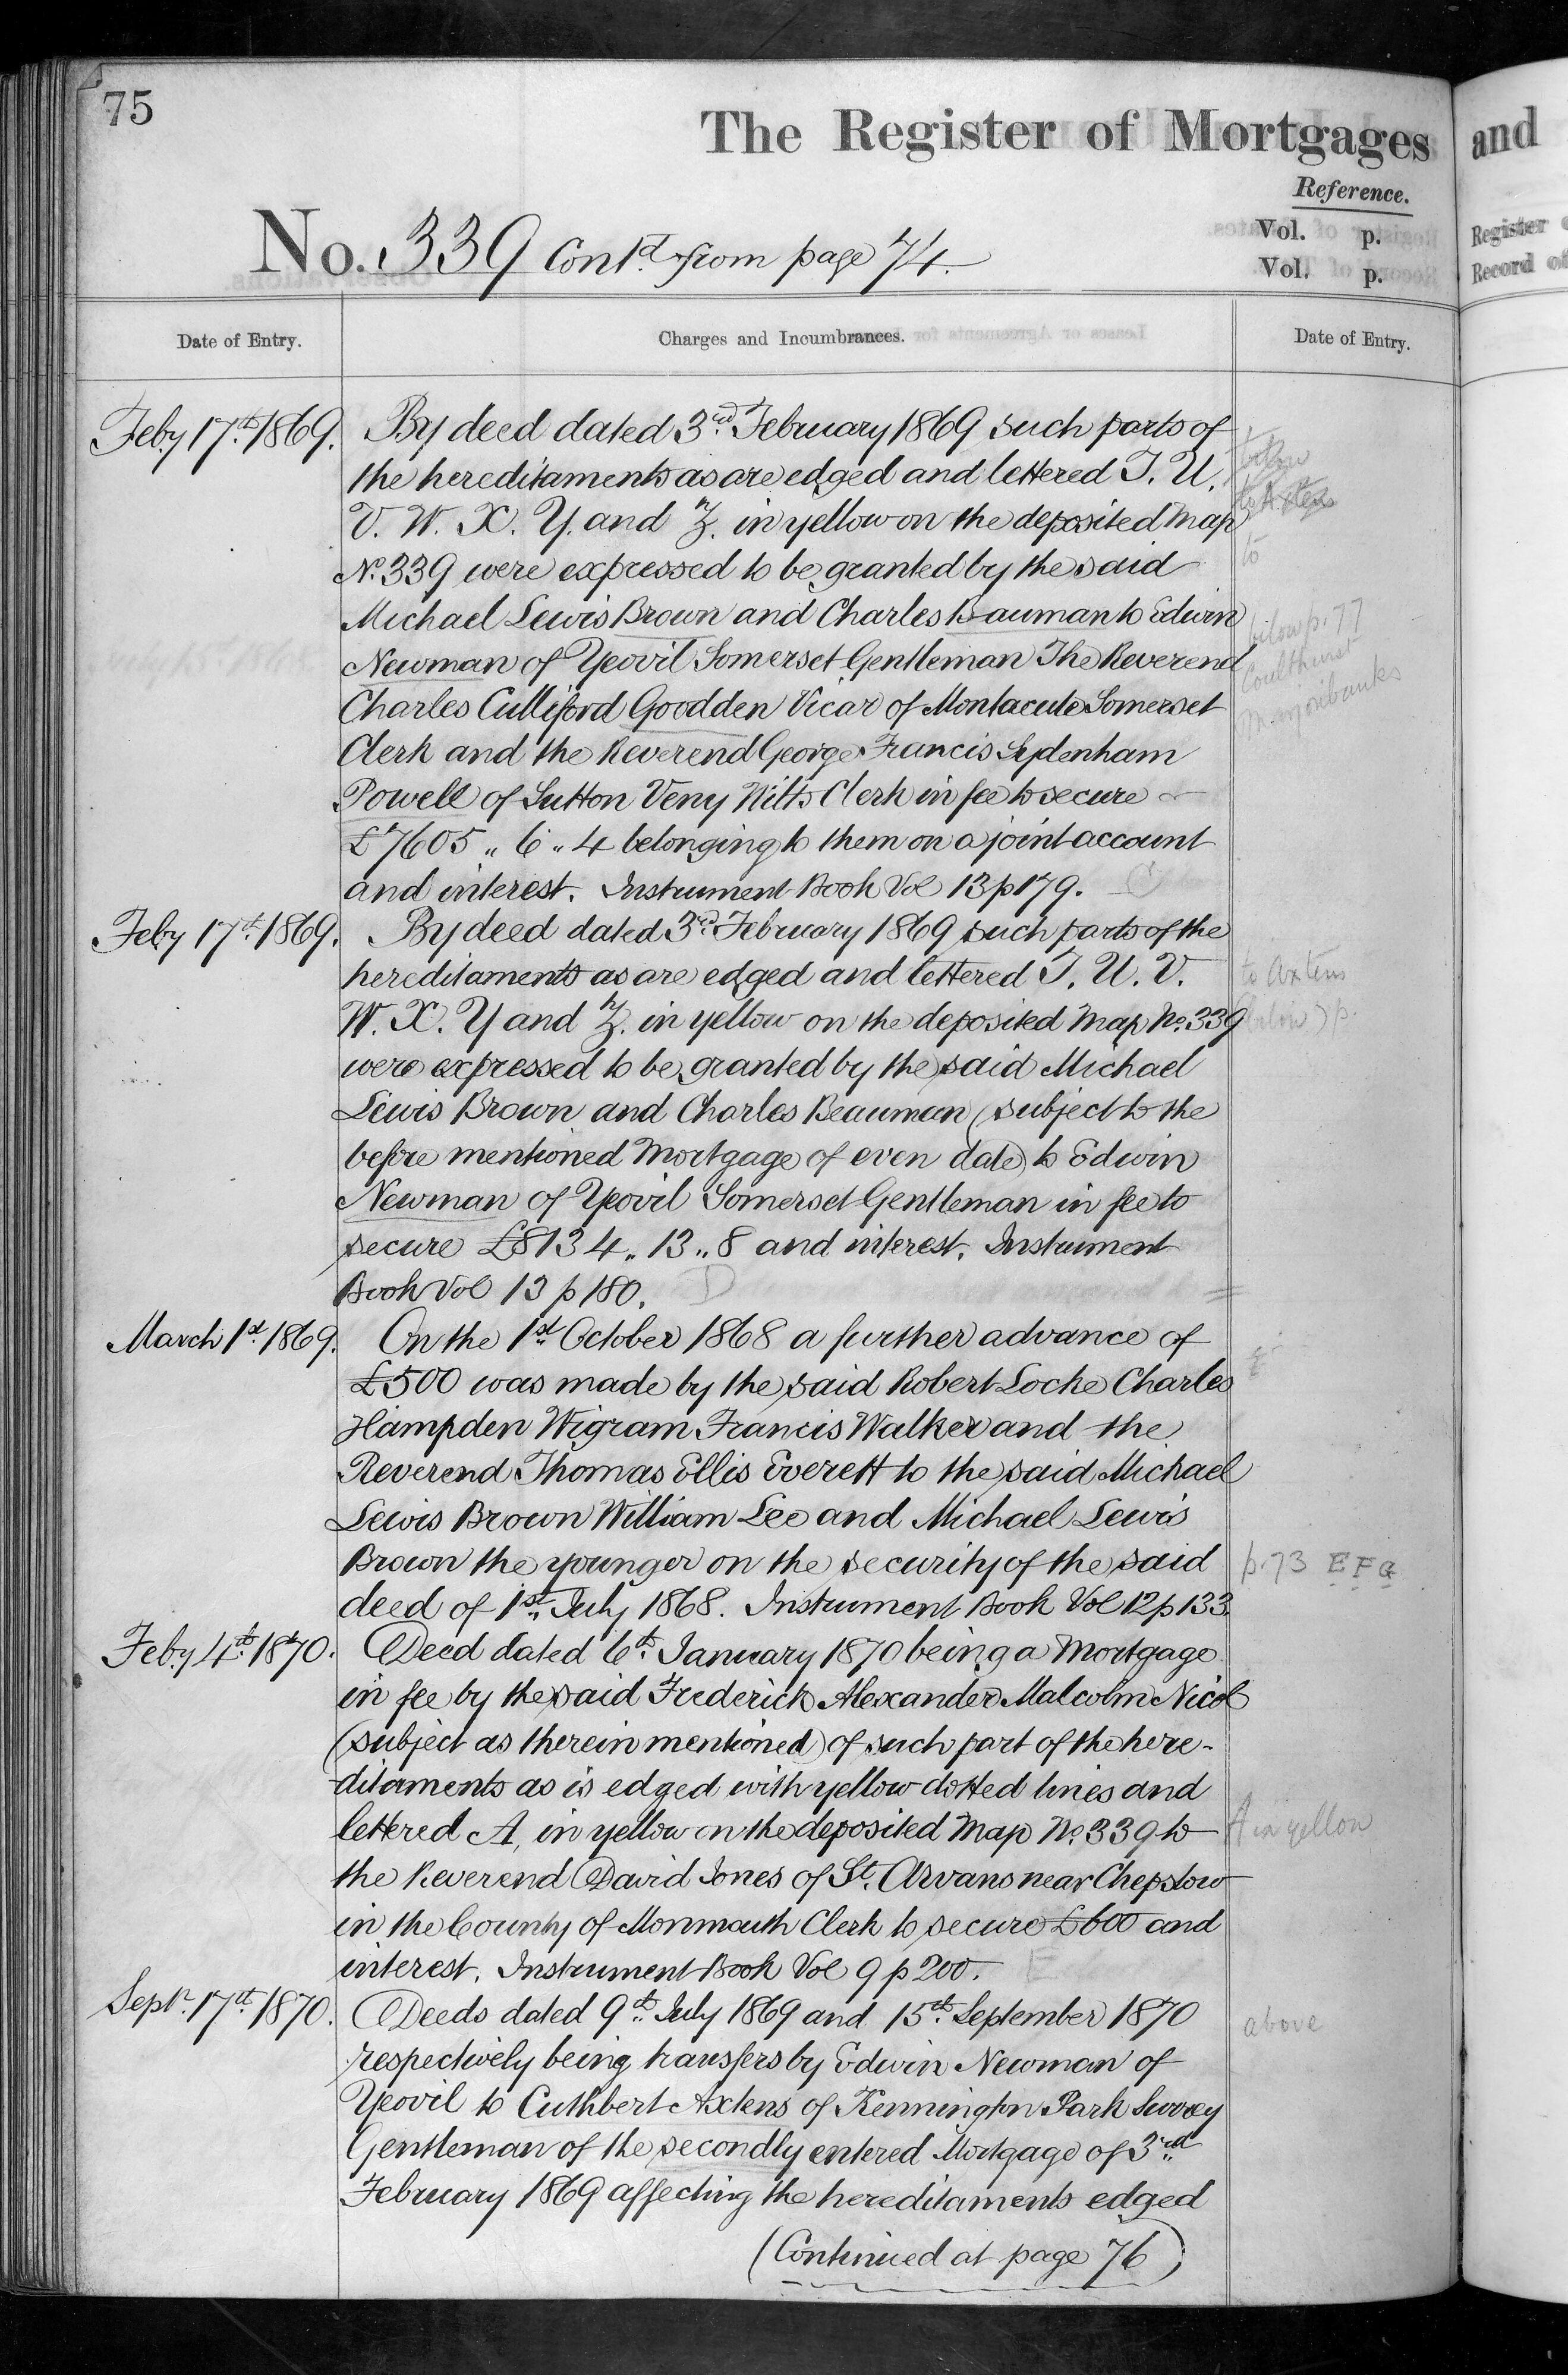 75
The Register of Mortgages
and
Reference.
No. 339 Cont.d from page 74.
Vol. p.
Vol. p.
Register
Record of
Date of Entry.
Charges and Incumbrances.
Date of Entry.
Feby 17th 1869.
By deed dated 3rd February 1869 such parts of
the hereditaments as are edged and lettered T. U.
V. W. X. Y. and Z. in yellow on the deposited Map
No. 339 were expressed to be granted by the said
Michael Lewis Brown and Charles Bauman to Edwin
Newman of Yeovil Somerset Gentleman The Reverend
Charles Culliford Goodden Vicar of Montacute Somerset
Clerk and the Reverend George Francis Sydenham
Powell of Sutton Veny Wilts Clerk in fee to secure
£7605 „ 6 „ 4 belonging to them on a joint account
and interest. Instrument Book Vol 13 p 179. C
to Axtens
to
below p. 77
Coulthurst
Marjoribanks
Feby 17th 1869.
By deed dated 3rd February 1869 such parts of the
hereditaments as are edged and lettered T. U. V.
W. X. Y and Z. in yellow on the deposited Map No. 339
were expressed to be granted by the said Michael
Lewis Brown and Charles Beauman (subject to the
before mentioned Mortgage of even date) to Edwin
Newman of Yeovil Somerset Gentleman in fee to
secure £8134 „ 13 „ 8 and interest. Instrument
Book Vol 13 p 180. D
to Axtens
below) p.
March 1st 1869.
On the 1st October 1868 a further advance of
£500 was made by the said Robert Locke Charles
Hampden Wigram Francis Walker and the
Reverend Thomas Ellis Everett to the said Michael
Lewis Brown William Lee and Michael Lewis
Brown the younger on the security of the said
deed of 1st July 1868. Instrument Book Vol 12 p 133.
p. 73 E F G
Feby 4th 1870.
Deed dated 6th January 1870 being a Mortgage
in fee by the said Frederick Alexander Malcolm Nicol
(subject as therein mentioned) of such part of the here-
ditaments as is edged with yellow dotted lines and
lettered A, in yellow on the deposited Map No. 339 to
the Reverend David Jones of St. Arvans near Chepstow
in the County of Monmouth Clerk to secure £600 and
interest. Instrument Book Vol 9 p 200. E
A in yellow
Septr. 17th 1870.
Deeds dated 9th July 1869 and 15th September 1870
respectively being transfers by Edwin Newman of
Yeovil to Cuthbert Axtens of Kennington Park Surrey
Gentleman of the secondly entered Mortgage of 3rd
February 1869 affecting the hereditaments edged
(Continued at page 76)
above